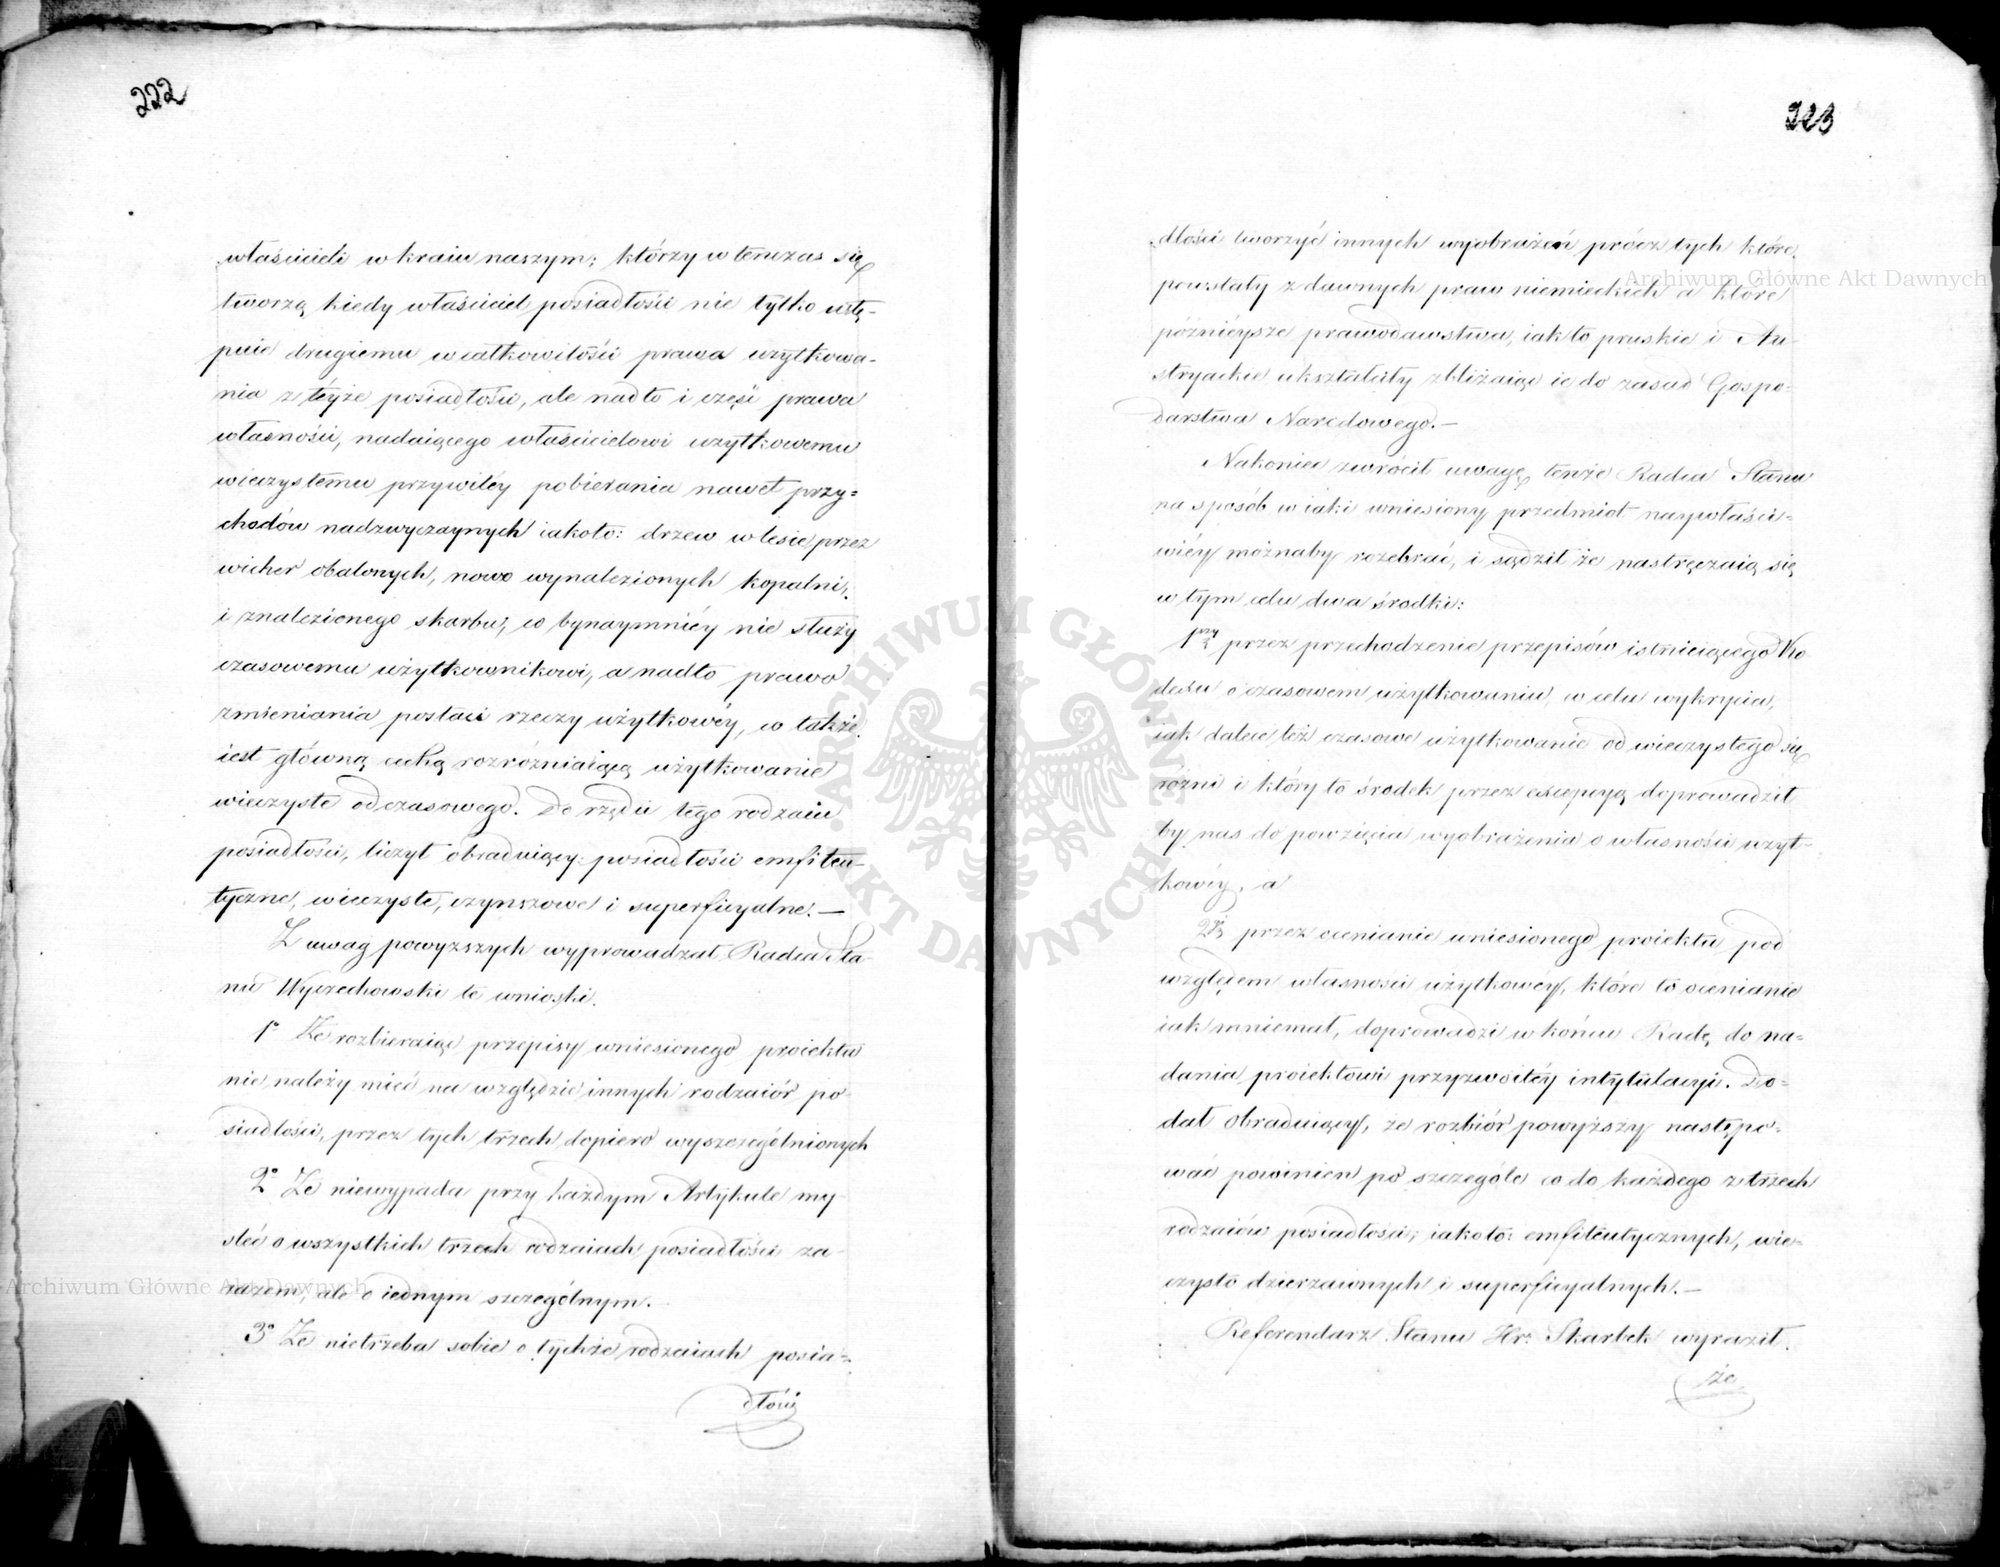 222
właścicieli w kraiu naszym; którzy w tenczas się
tworzą kiedy właściciel posiadłości nie tylko ustę-
puie drugiemu w całkowitości prawa użytkowa-
nia z téyże posiadłości, ale nadto i części prawa
własności, nadaiącego właścicielowi użytkowemu
wieczystemu przywiléy pobierania nawet przy=
chodów nadzwyczaynych iakoto: drzew w lesie przez
wicher obalonych, nowo wynalezionych kopalni,
i znalezionego skarbu, co bynaymniéy nie służy
czasowemu użytkownikowi, a nadto prawo
zmieniania postaci rzeczy użytkowéy, co także
iest główną cechą rozróżniaiącą użytkowanie
wieczyste od czasowego. Do rzędu tego rodzaiu
posiadłości, liczył obraduiący: posiadłości emfiteu-
tyczne, wieczyste, czynszowe i superficyalne. —
Z uwag powyższych wyprowadzał Radca Sta-
nu Wyczechowski te wnioski.
1° Że rozbieraiąc przepisy wniesionego proiektu
nie należy mieć na względzie innych rodzaiów po-
siadłości, przez tych trzech dopiero wyszczególnionych
2° Że niewypada przy każdym Artykule my-
śleć o wszystkich trzech rodzaiach posiadłości za-
razem, ale o iednym szczególnym.
3° Że nietrzeba sobie o tychże rodzaiach posia-
dłości
223
dłości tworzyć innych wyobrażeń prócz tych które
powstały z dawnych praw niemieckich a które
późniéysze prawodawstwa, iak to pruskie i Au-
stryackie ukształciły zbliżaiąc ie do zasad Gospo-
darstwa Narodowego. —
Nakoniec zwrócił uwagę tenże Radca Stanu
na sposób w iaki wniesiony przedmiot naywłaści-
wiéy możnaby rozebrać, i sądził że nastręczaią się
w tym celu dwa środki:
1szy przez przechodzenie przepisów istnieiącego Ko
dexu o czasowem użytkowaniu, w celu wykrycia,
iak dalece też czasowe użytkowanie od wieczystego się
różni i który to środek przez excepcyą doprowadził
by nas do powzięcia wyobrażenia o własności użyt-
kowéy, a
2gi przez ocenianie wniesionego proiektu pod
względem własności użytkowéy, które to ocenianie
iak mniemał, doprowadzi w końcu Radę do na-
dania proiektowi przyzwoitéy intytulacyi. Do-
dał obraduiący, że rozbiór powyższy nastepo-
wać powinien po szczególe co do każdego z trzech
rodzaiów posiadłości; iakoto: emfiteutycznych, wie-
czysto dzierzawnych i superficyalnych. —
Referendarz Stanu Hr: Skarbek wyraził.
że
Archiwum Główne Akt Dawnych
Archiwum Główne Akt Dawnych
ARCHIWUM GŁÓWNE AKT DAWNYCH